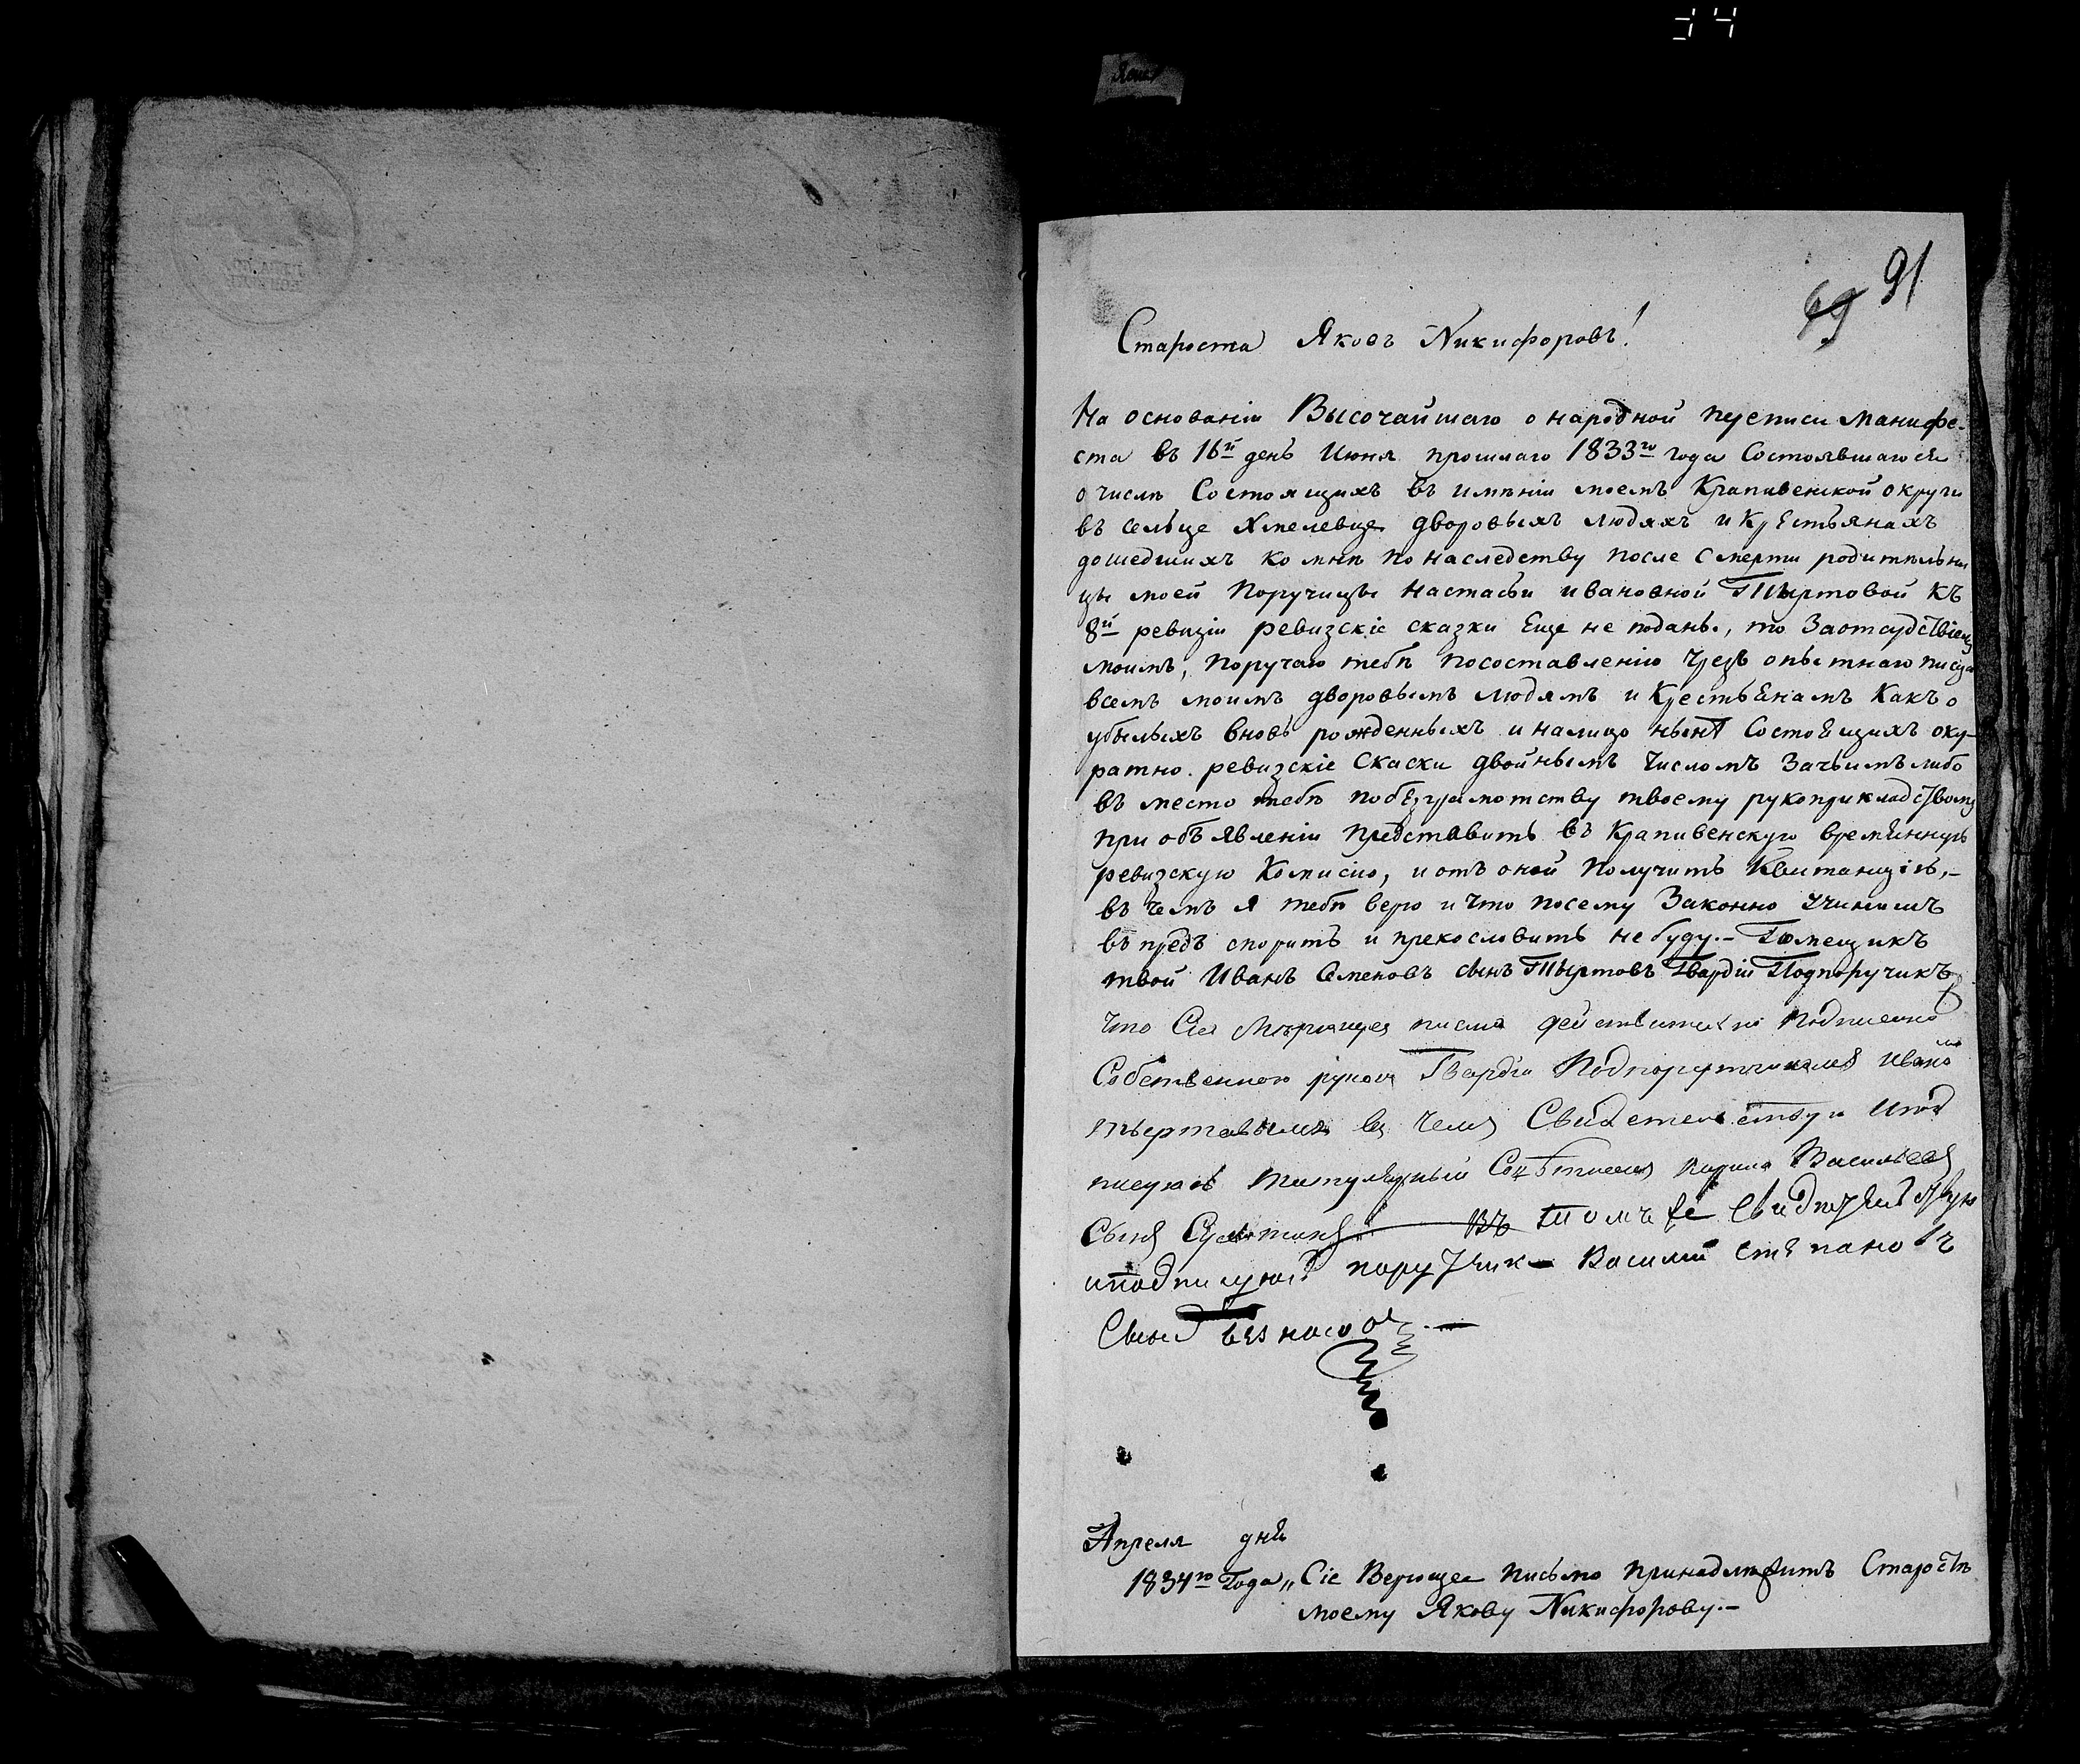 34
91
69
Староста Яковъ Никифоровъ!
На основаніи Высочайшаго о народной переписи манифе-
ста въ 16й день Июня прошлаго 1833го года состоявшагося
о числѣ состоящихъ въ имѣніи моемъ Крапивенской округи
въ сельце Хмелевце дворовыхъ людяхъ и крестьянахъ
дошедшихъ ко мнѣ по наследству после смерти родительни
цы моей Поручицы Настасьи Ивановной Тыртовой къ
8й ревизіи ревизскіе сказки еще не поданы, то за отсудствіемъ
моимъ, поручаю тебѣ по составленію чрезъ опытнаго писца
всемъ моимъ дворовымъ людямъ и крестьенамъ какъ о
убылыхъ вновь рожденныхъ и налицо нынѣ состоещихъ аку-
ратно ревизскіе скаски двойнымъ числомъ за чьимъ либо
въ место тебѣ по безграмотству твоему рукоприкладствомъ
при объявленіи представить въ Крапивенскую временную
ревизскую Комисію, и отъ оной получить квитанцію,-
въ чемъ я тебѣ верю и что посему законно учинишъ
въ предъ спорить и прекословить не буду.- Помещикъ
твой Иванъ Семеновъ сынъ Тыртовъ Гвардіи Подпоручикъ
что сие верющея писмо действително подписано
Собственною рукою Гвардіи Подпорутчикомъ Иваномъ
тыртовымъ въ чемъ Свидетельствую и под
писуюсь титулярный Советникъ Васильевъ
Сынъ въ томъ же свидетельствую
и подписуюсь порутчикъ Василий Степановъ
Сынъ
Апреля дня
1834го Года „Сіе Верющее письмо принадлежитъ Старостѣ
моему Якову Никифорову.-